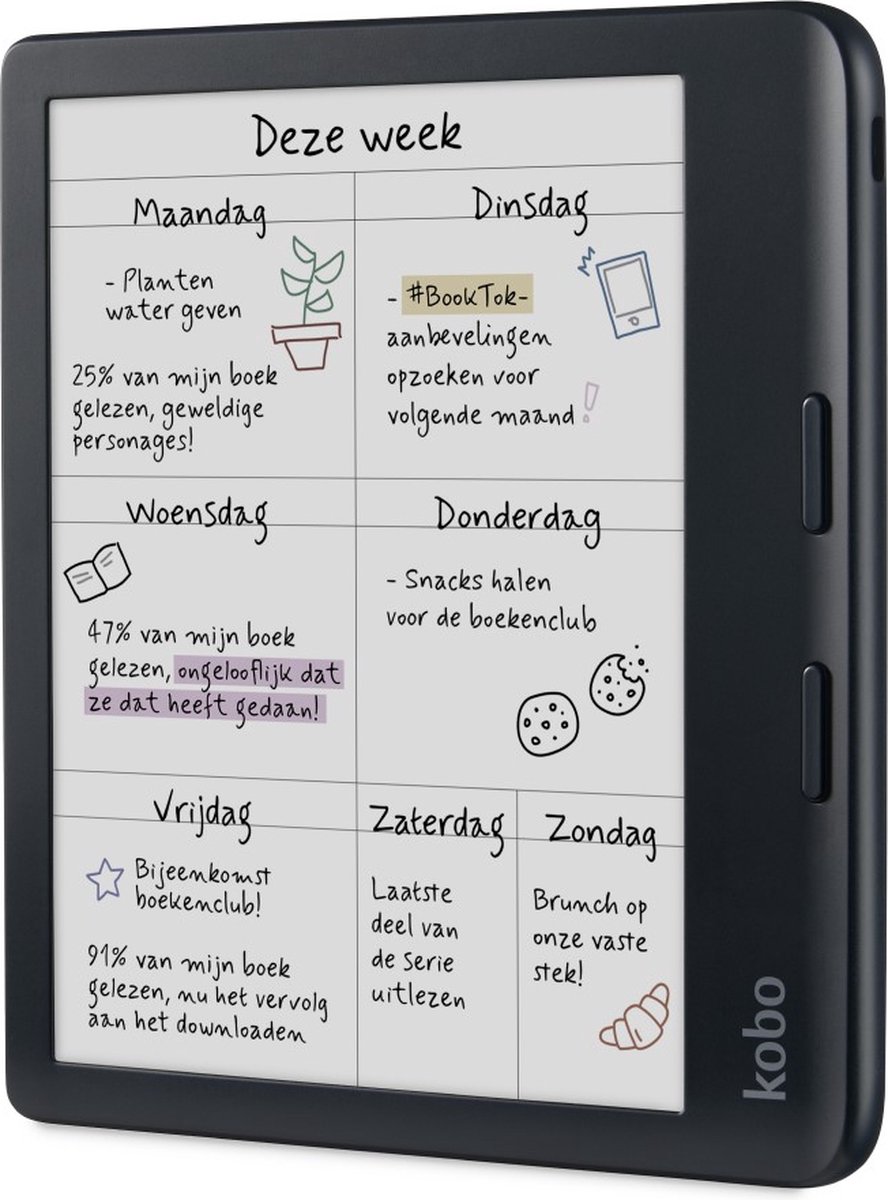 Deze week
Maandag
- Planten
water geven
25% van mijn boek
gelezen, geweldige
personages!
Dinsdag
- #BookTok-
aanbevelingen
opzoeken voor
volgende maand!
Woensdag
47% van mijn boek
gelezen, ongelooflijk dat
ze dat heeft gedaan!
Donderdag
- Snacks halen
voor de boekenclub
Vrijdag
Bijeenkomst
boekenclub!
91% van mijn boek
gelezen, nu het vervolg
aan het downloaden
Zaterdag
Laatste
deel van
de serie
uitlezen
Zondag
Brunch op
onze vaste
stek!
kobo